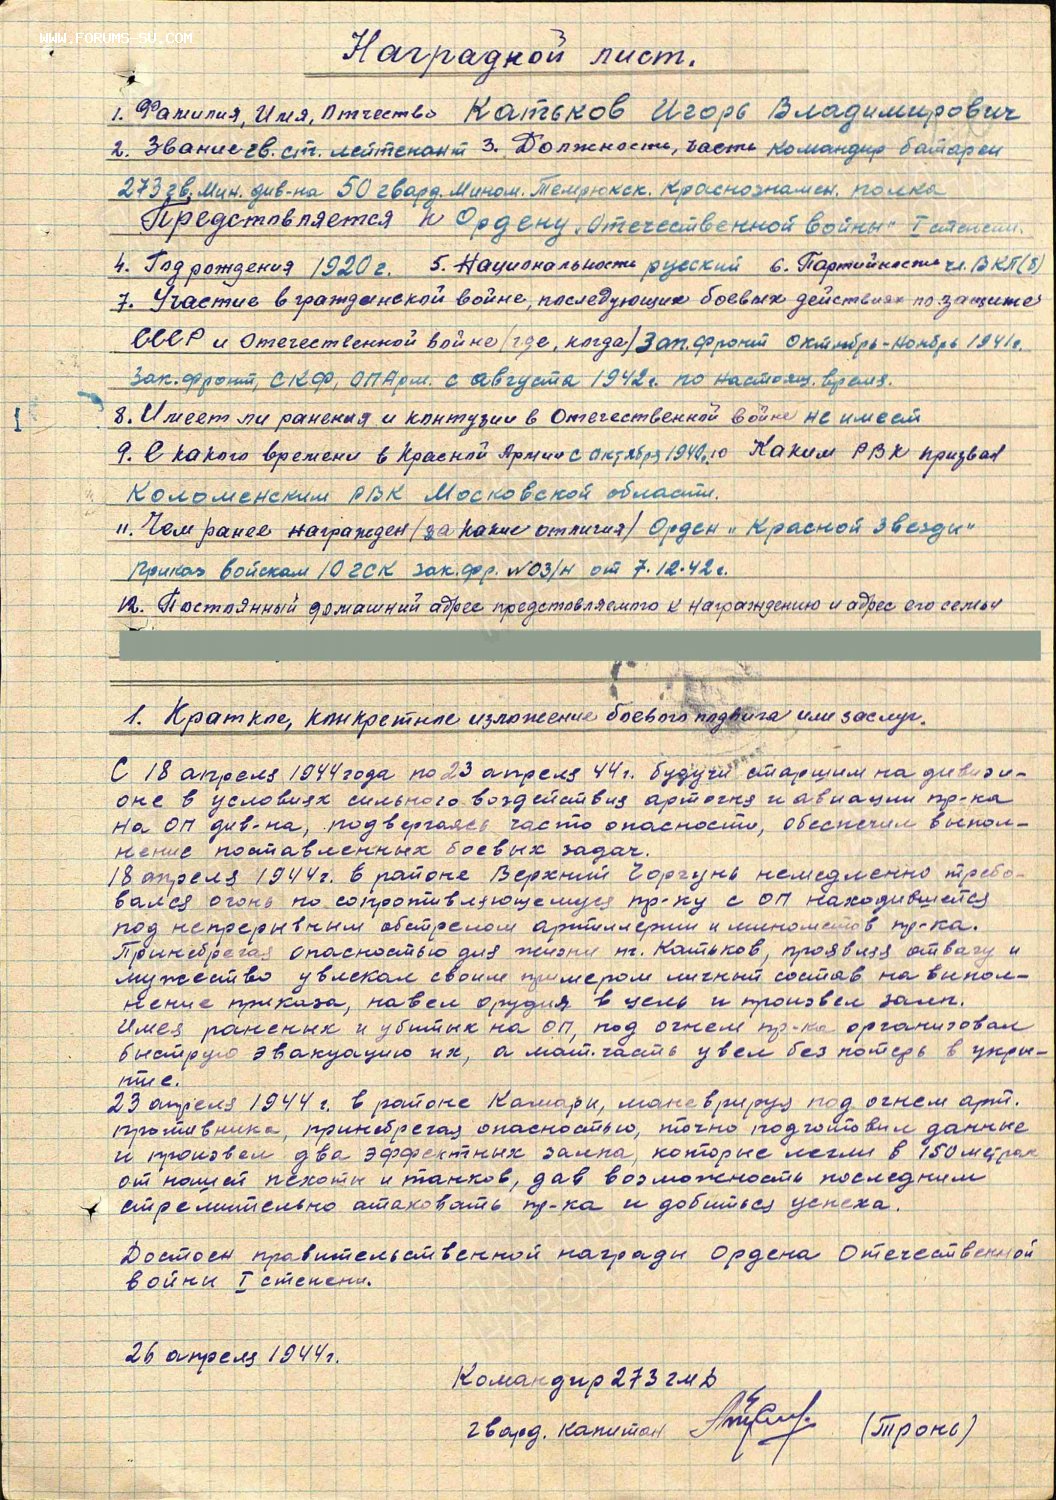 WWW.FORUMS-SU.COM
Наградной лист.
1. Фамилия, Имя, Отчество Катьков Игорь Владимирович
2. Звание гв. ст. лейтенант 3. Должность, часть командир батареи
273 гв. мин. див-на 50 гвард. Мином. Темрюкск. Краснознамен. полка
Предстовляется к Ордену „Отечественной войны" I степени.
4. Год рождения 1920 г. 5. Национальность русский 6. Партийность чл. ВКП(б)
7. Участие в гражданской войне, последующих боевых действиях по защите
СССР и Отечественной войне (где, когда) Зап. фронт октябрь-ноябрь 1941г.
Зак. фронт, СКФ, ОПАрм. с августа 1942г. по настоящ. время.
8. Имеет ли ранения и контузии в Отечественной войне не имеет
9. С какого времени в Красной Армии с октября 1940г. 10 Каким РВК призван
Коломенским РВК Московской области.
11. Чем ранее награжден (за какие отличия) Орден „Красной Звезды"
приказ войскам 10 ГСК Зак. фр. №03/н от 7.12.42г.
12. Постоянный домашний адрес предстовляемого к награждению и адрес его семьи
1. Краткое, конкретное изложение боевого подвига или заслуг.
С 18 апреля 1944 года по 23 апреля 44 г. будучи старшим на дивизи-
оне в условиях сильного воздействия артогня и авиации пр-ка
на ОП див-на, подвергаясь часто опасности, обеспечил выпол-
нение поставленных боевых задач.
18 апреля 1944 г. в районе Верхний Чоргунь немедленно требо-
вался огонь по сопротивляющемуся пр-ку с ОП находившейся
под непрерывным обстрелом артиллерии и минометов пр-ка.
Принебрегая опасностью для жизни т. Катьков, проявляя отвагу и
мужество увлекал своим примером личный состав на выпол-
нение приказа, навел орудия в цель и произвел залп.
Имея раненых и убитых на ОП, под огнем пр-ка организовал
быструю эвакуацию их, а мат.часть увел без потерь в укры-
тие.
23 апреля 1944 г. в районе Камары, маневрируя под огнем арт.
противника, принебрегая опасностью, точно подготовил данные
и произвел два эффектных залпа, которые легли в 150 метрах
от нашей пехоты и танков, дав возможность последним
стремительно атаковать пр-ка и добиться успеха.
Достоен правительственной награды Ордена Отечественной
войны I степени.
26 апреля 1944 г.
Командир 273 гмд
гвард. капитан (Тронь)